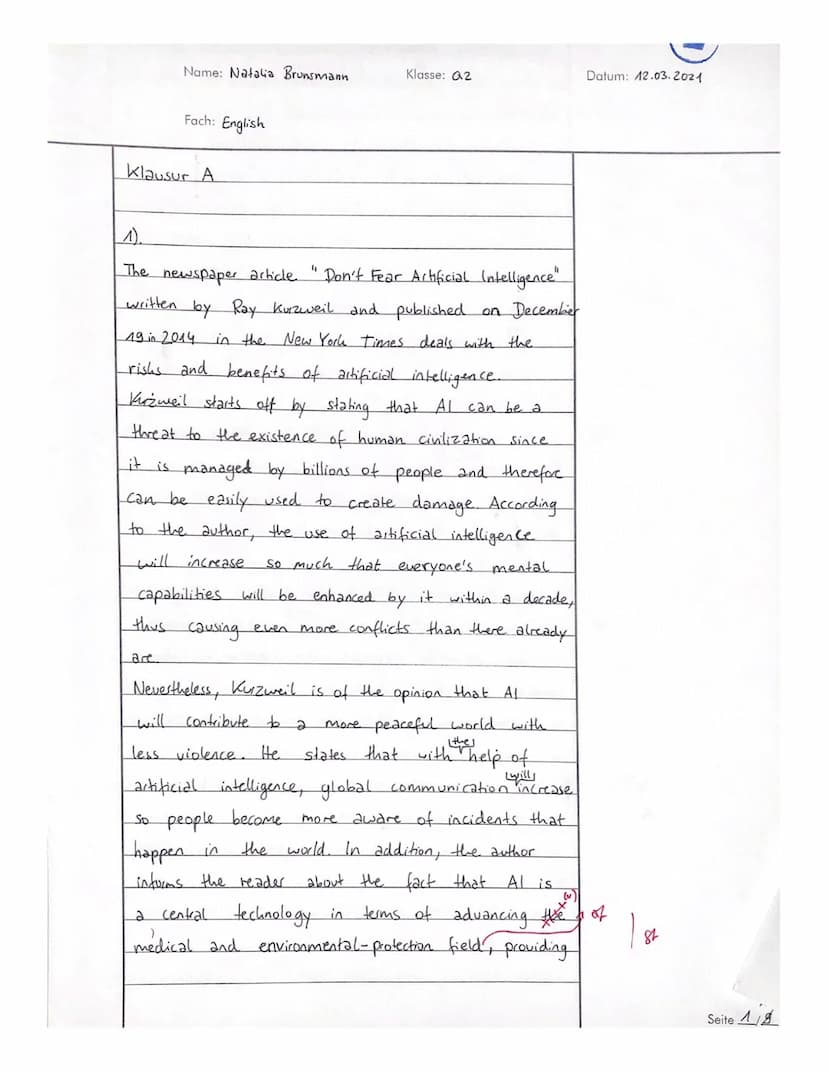 Name: Natalia Brunsmann Klasse: Q2 Datum: 12.03.2021
Fach: English
Klausur A
1).
The newspaper article "Don't Fear Artificial Intelligence"
written by Ray Kurzweil and published on December
19 in 2014 in the New York Times deals with the
risks and benefits of artificial intelligence.
Kurzweil starts off by stating that AI can be a
threat to the existence of human civilization since
it is managed by billions of people and therefore
can be easily used to create damage. According
to the author, the use of artificial intelligence
will increase so much that everyone's mental
capabilities will be enhanced by it within a decade,
thus causing even more conflicts than there already
are.
Nevertheless, Kurzweil is of the opinion that AI
will contribute to a more peaceful world with
less violence. He states that with (the) help of
artificial intelligence, global communication (will) increase
so people become more aware of incidents that
happen in the world. In addition, the author
informs the reader about the fact that AI is
a central technology in terms of advancing the
medical and environmental-protection field, providing
of
St
Seite 1/8